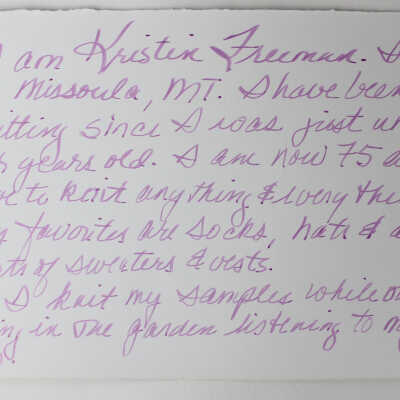 am Kristin Freeman. I
Missoula, MT. I have been
itting since I was just un
years old. I am now 75 a
to knit anything & everythi
favorites are socks, hats &
of sweaters & vests.
I knit my samples while
ing in the garden listening to